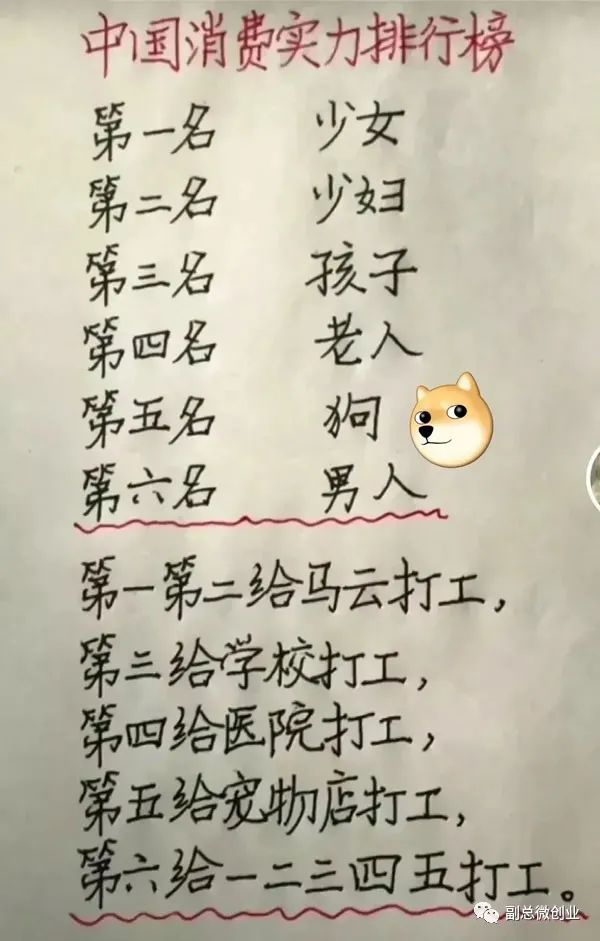 中国消费实力排行榜
第一名 少女
第二名 少妇
第三名 孩子
第四名 老人
第五名 狗
第六名 男人
第一第二给马云打工，
第三给学校打工，
第四给医院打工，
第五给宠物店打工，
第六给一二三四五打工。
副总微创业